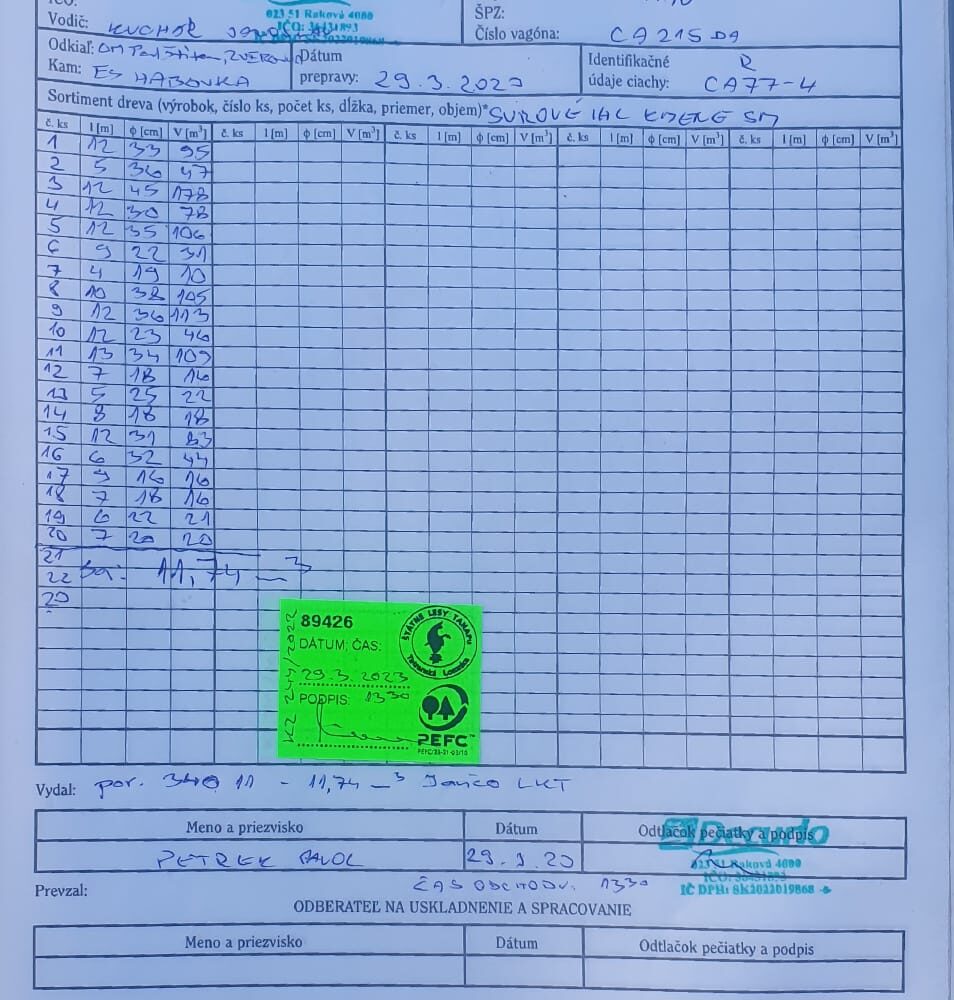 023 51 Raková 4080
IČO: 36431893
Vodič: KUCHÁR
ŠPZ:
Číslo vagóna: CA 215 DA
Odkiaľ:
Kam: ES HABOVKA
Dátum
prepravy: 29.3.2023
Identifikačné R
údaje ciachy: CA77-4
Sortiment dreva (výrobok, číslo ks, počet ks, dĺžka, priemer, objem)* SUROVÉ IHL KMENE SM
č. ks l [m] ϕ [cm] V [m³] č. ks l [m] ϕ [cm] V [m³] č. ks l [m] ϕ [cm] V [m³] č. ks l [m] ϕ [cm] V [m³] č. ks l [m] ϕ [cm] V [m³]
1 12 33 95
2 5 36 47
3 12 45 178
4 12 30 78
5 12 35 106
6 9 22 31
7 4 19 10
8 10 38 105
9 12 36 113
10 12 23 46
11 13 34 109
12 7 18 16
13 5 25 22
14 8 18 18
15 12 31 83
16 6 32 44
17 9 16 16
18 7 18 16
19 6 22 21
20 7 20 20
21
22 11,74 m3
20
89426
DÁTUM; ČAS:
29.3.2023
PODPIS: 1330
ŠTÁTNE LESY TANAPU
Tatranská Lomnica
PEFC™
Vydal: por. 340 11 - 11,74 m3 Jančo LKT
Meno a priezvisko Dátum Odtlačok pečiatky a podpis
PETREK PAVOL 29.3.23
023 51 Raková 4080
IČO: 36431893
IČ DPH: SK2022019868
Prevzal: ČAS ODCHODU: 1330
ODBERATEĽ NA USKLADNENIE A SPRACOVANIE
Meno a priezvisko Dátum Odtlačok pečiatky a podpis